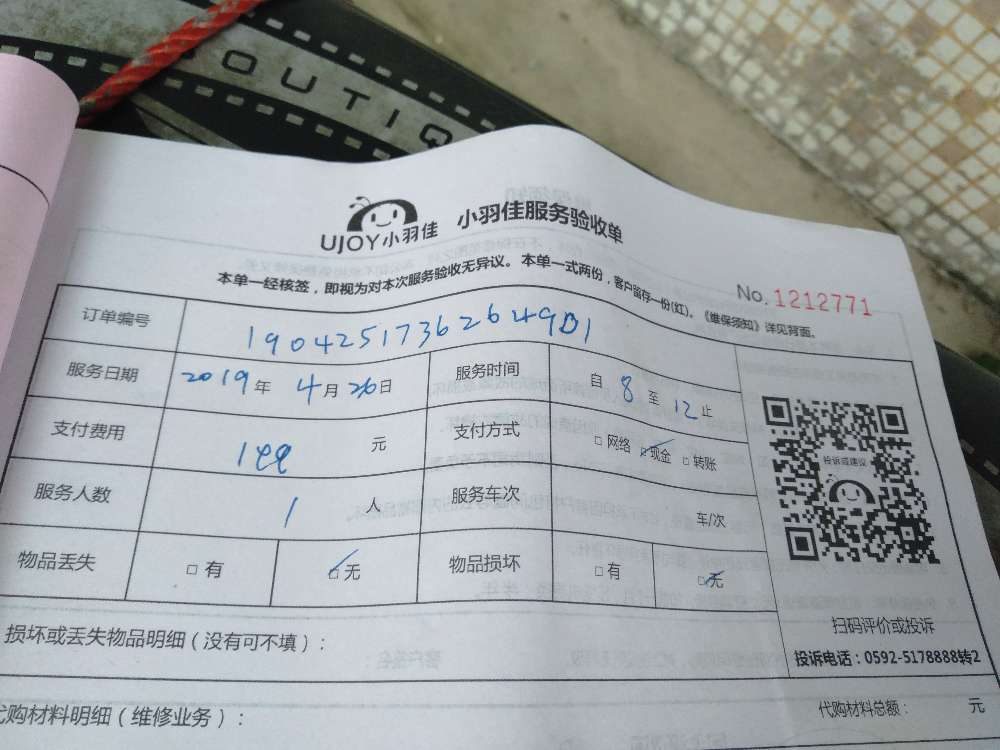 OUTIQ
UJOY小羽佳 小羽佳服务验收单
本单一经核签，即视为对本次服务验收无异议。本单一式两份，客户留存一份(红)。《维保须知》详见背面。
No. 1212771
订单编号 1904251736264901
服务日期 2019年 4月 26日 服务时间 自 8 至 12 止
支付费用 199 元 支付方式 □网络 ☑现金 □转账
服务人数 1 人 服务车次 车/次
物品丢失 □有 ☑无 物品损坏 □有 ☑无
投诉或建议
扫码评价或投诉
投诉电话：0592-5178888转2
损坏或丢失物品明细（没有可不填）：
代购材料明细（维修业务）： 代购材料总额： 元